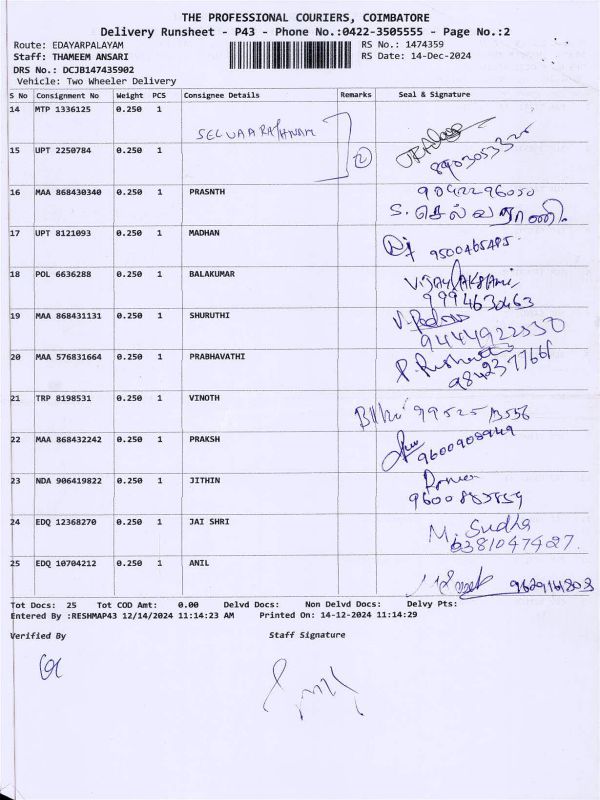 THE PROFESSIONAL COURIERS, COIMBATORE
Delivery Runsheet - P43 - Phone No.:0422-3505555 - Page No.:2
Route: EDAYARPALAYAM RS No.: 1474359
Staff: THAMEEM ANSARI RS Date: 14-Dec-2024
DRS No.: DCJB147435902
Vehicle: Two Wheeler Delivery
S No Consignment No Weight PCS Consignee Details Remarks Seal & Signature
14 MTP 1336125 0.250 1
SELVAARATHNAM
15 UPT 2250784 0.250 1
16 MAA 868430340 0.250 1 PRASNTH 9042296050
S. செல்வராணி
17 UPT 8121093 0.250 1 MADHAN 9500465485
18 POL 6636288 0.250 1 BALAKUMAR
9994630463
19 MAA 868431131 0.250 1 SHURUTHI
9444922330
20 MAA 576831664 0.250 1 PRABHAVATHI
21 TRP 8198531 0.250 1 VINOTH
22 MAA 868432242 0.250 1 PRAKSH 9600908949
23 NDA 906419822 0.250 1 JITHIN
24 EDQ 12368270 0.250 1 JAI SHRI M. Sudha
6381047427.
25 EDQ 10704212 0.250 1 ANIL
9629161803
Tot Docs: 25 Tot COD Amt: 0.00 Delvd Docs: Non Delvd Docs: Delvy Pts:
Entered By :RESHMAP43 12/14/2024 11:14:23 AM Printed On: 14-12-2024 11:14:29
Verified By Staff Signature